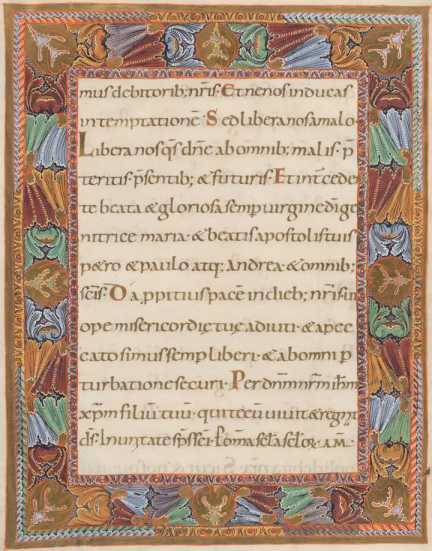 mus debitorib; nr̄is. Et ne nos inducas
in temptationē. Sed libera nos a malo
Libera nos qs̄ dnē ab omnib; malis. p̄
teritis. p̄sentib; & futuris. Et int̄cede
te beata & gloriosa semp uirgine dī ge
nitrice maria & beatis apostolis tuis
p&ro & paulo atq; andrea & omnib;
sc̄is. Da ppitius pacē in dieb; nr̄is. ut
ope misericordie tue adiuti & a pec
cato simus semp liberi & ab omni p
turbatione securi. Per dnm nr̄m ihm̄
xp̄m filiū tuū. qui tecū uiuit & regn̄
ds̄. In unitate sp̄s sc̄i. P om̄a scl̄a scl̄or. am̄.